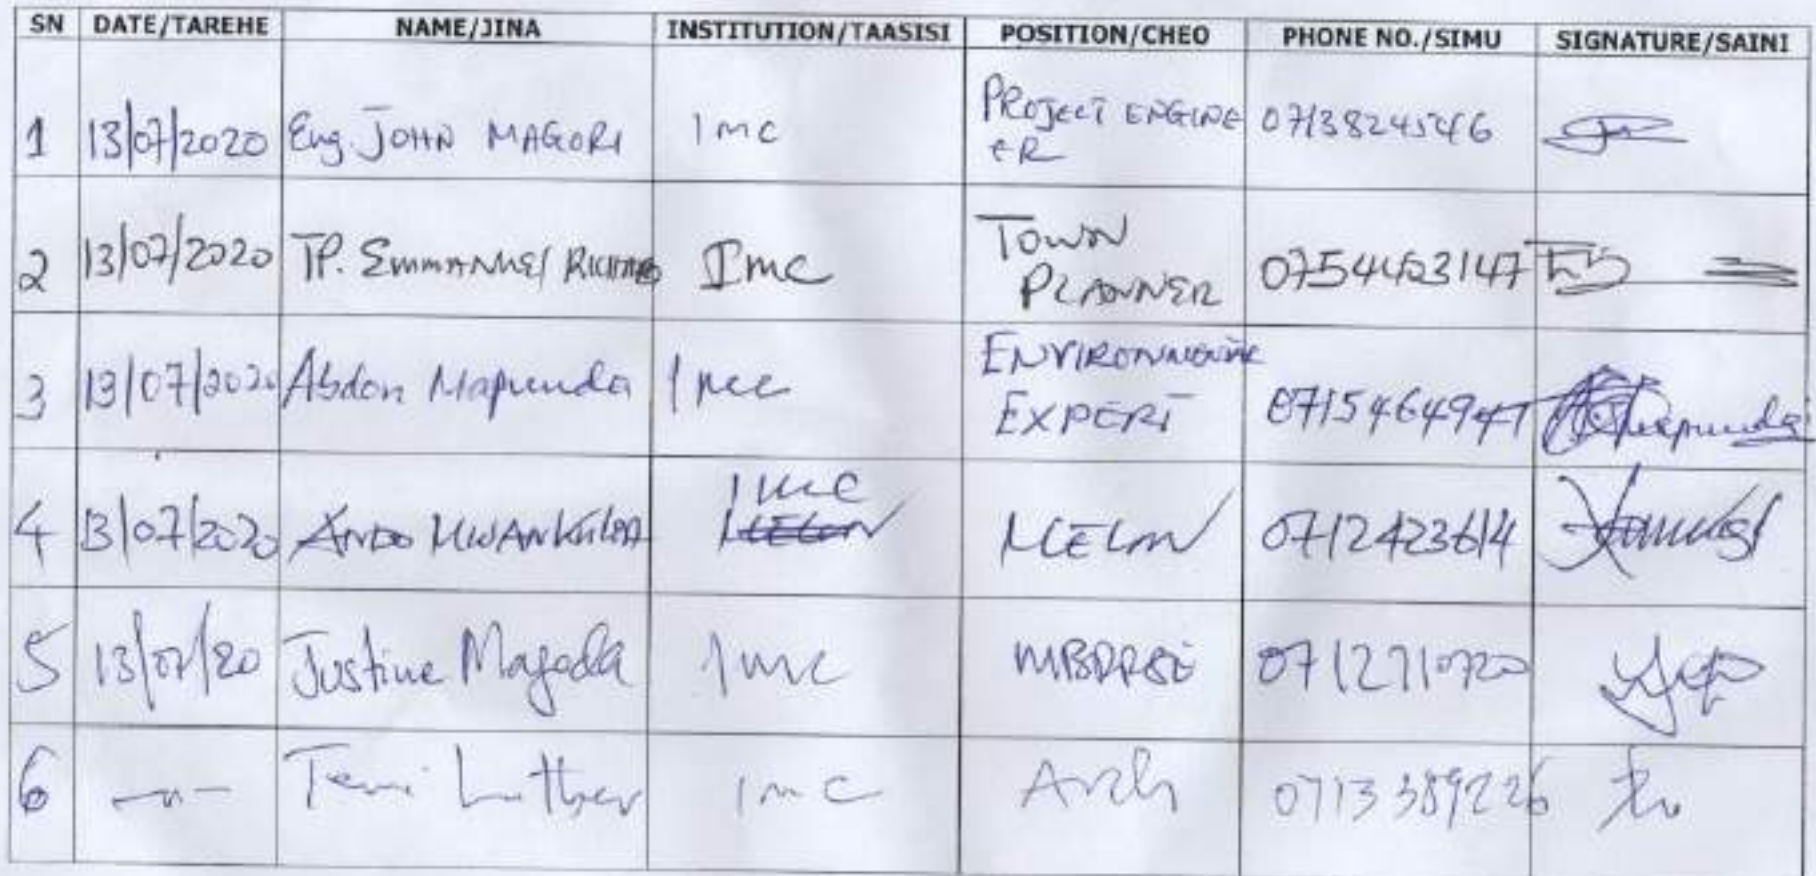 SN DATE/TAREHE NAME/JINA INSTITUTION/TAASISI POSITION/CHEO PHONE NO./SIMU SIGNATURE/SAINI
1 13/07/2020 Eng. JOHN MAGORI IMC PROJECT ENGINE
ER
2 13/07/2020 TP. EMMANUEL RICHARD IMC TOWN
PLANNER 0754423147
3 13/07/2020 Abdon Mapunda IMC ENVIRONMENTAL
EXPERT 0715464947 Mapunda
4 13/07/2020 IMC
0712423614
5 13/07/20 Justine IMC 0712710720
6 —"— Luther IMC Arch 0713389226